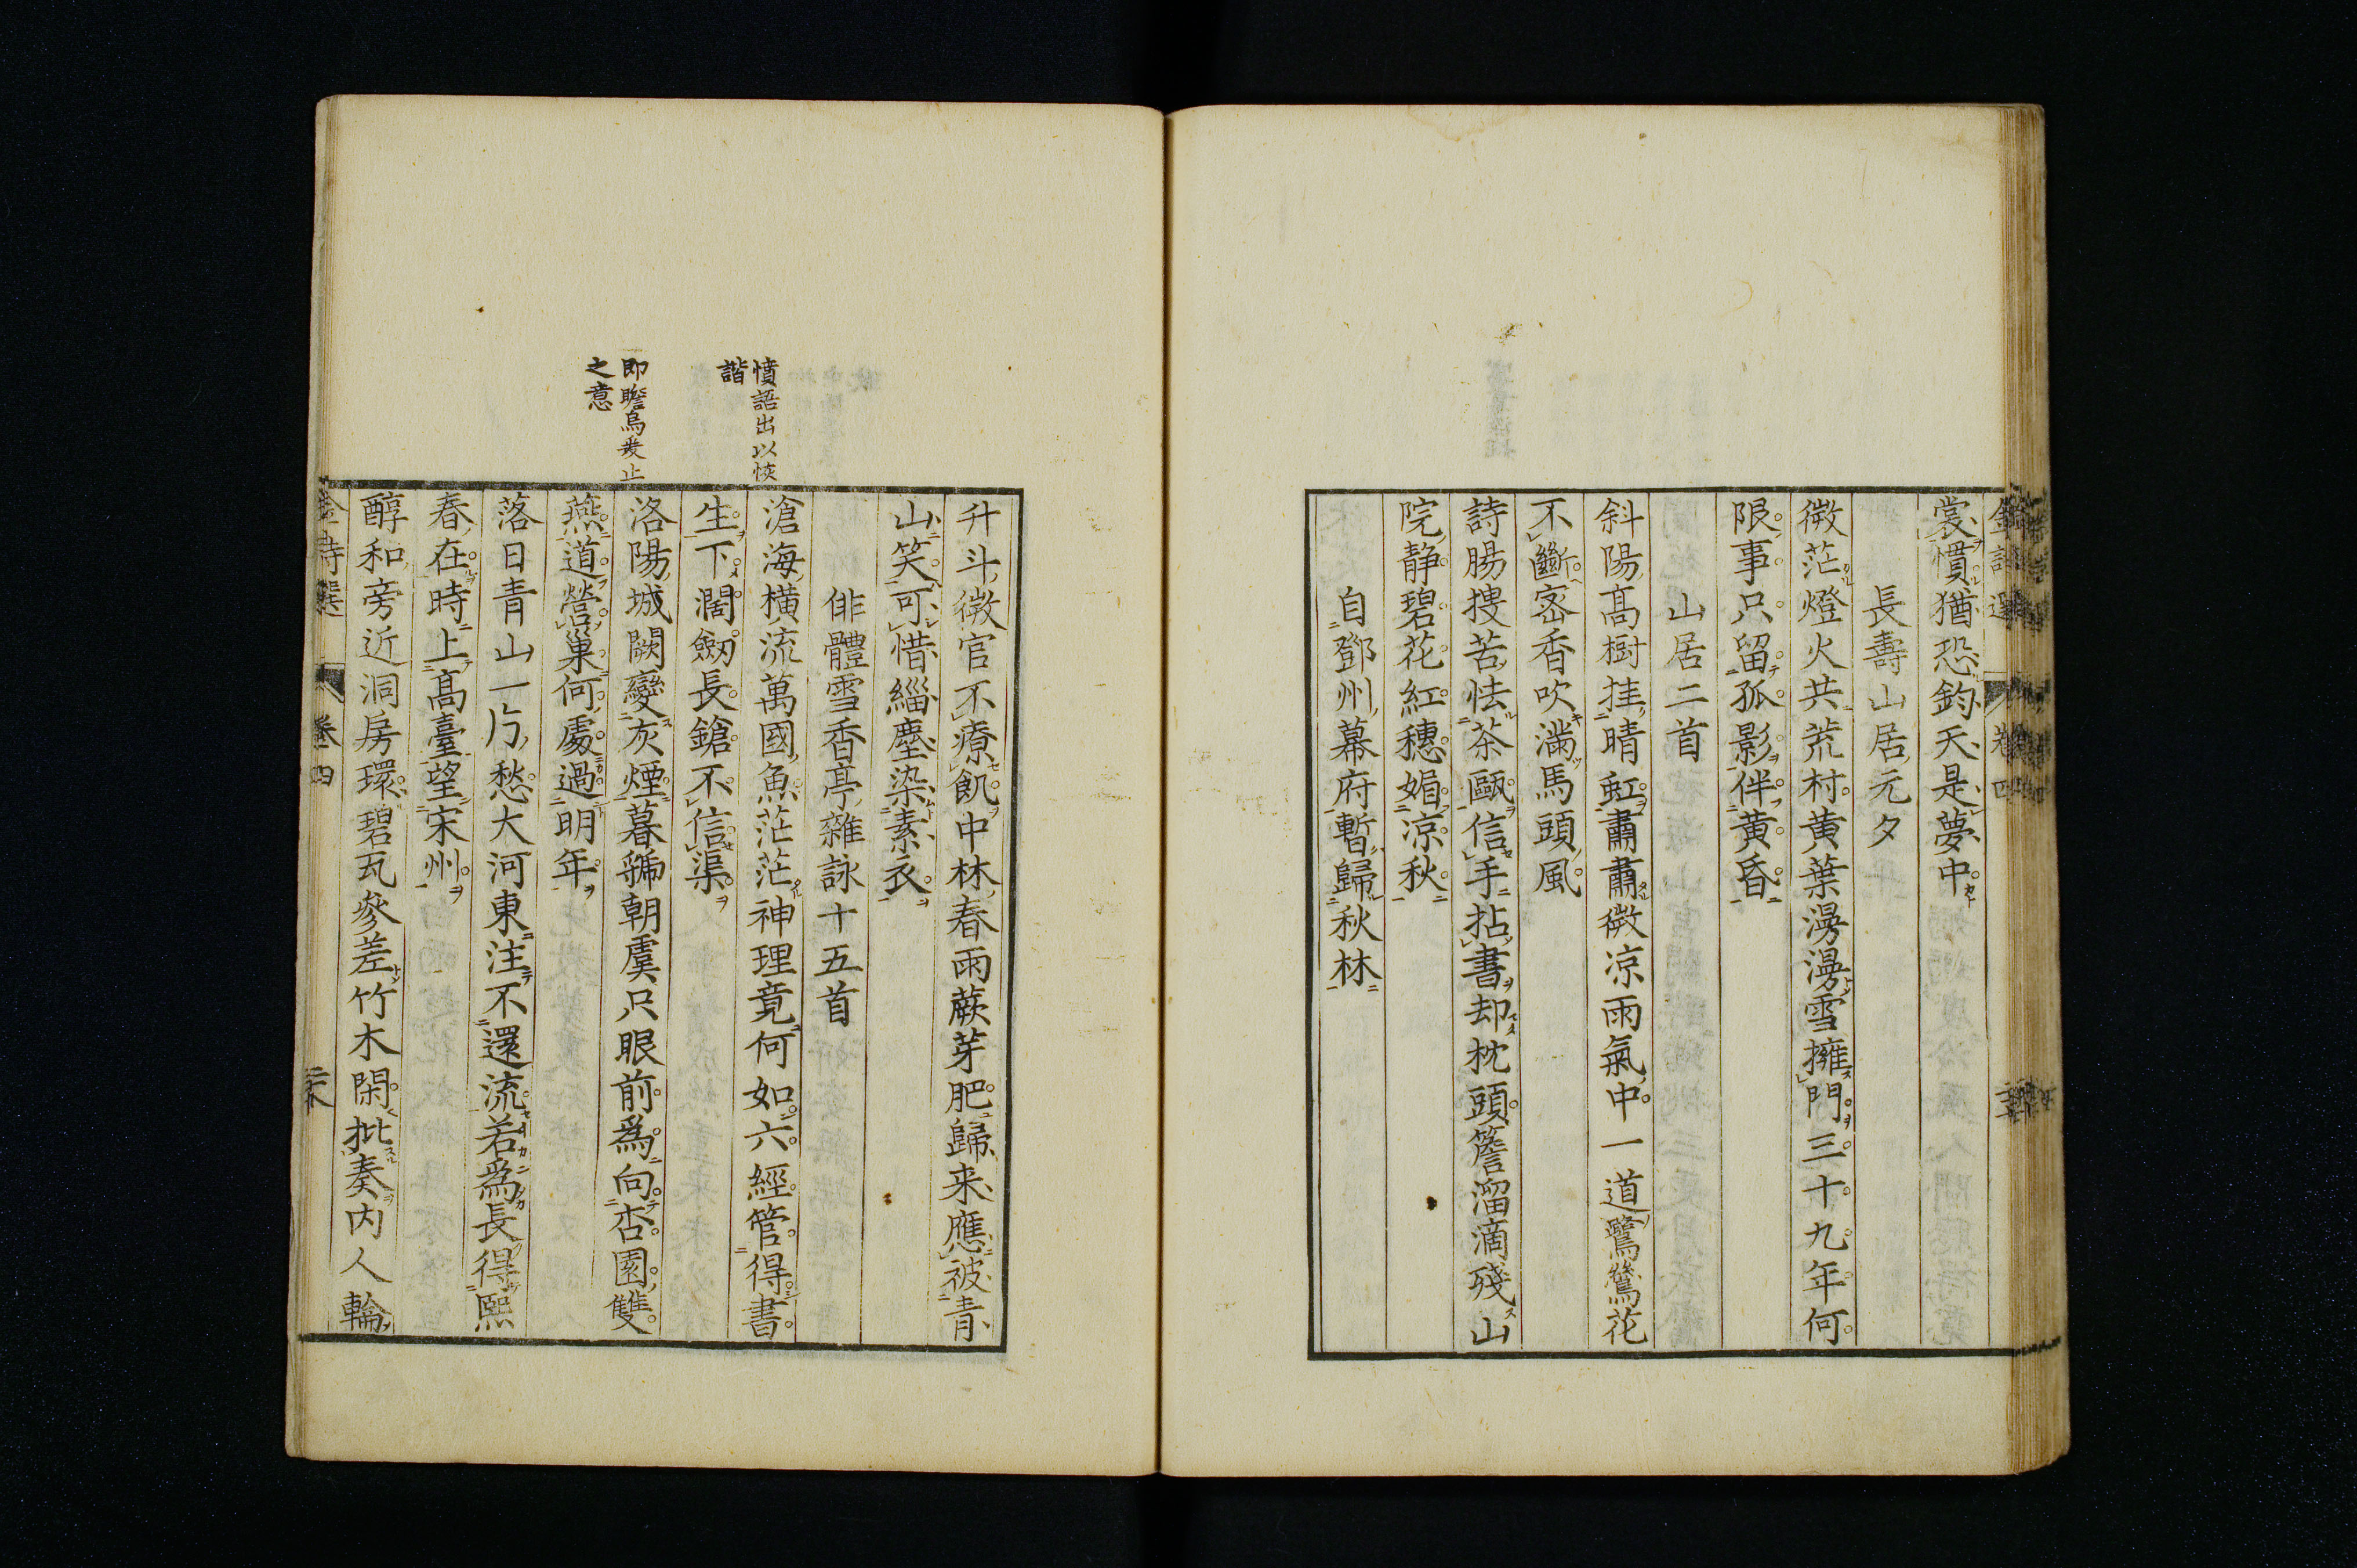 裳慣猶恐鈞天是夢中
長壽山居元夕
微茫燈火共荒村黄葉漫漫雪擁門三十九年何
限事只留孤影伴黄昏
山居二首
斜陽高樹挂晴虹肅肅微凉雨氣中一道鷺鷥花
不斷密香吹滿馬頭風
詩腸搜苦怯茶甌信手拈書却枕頭簷溜滴殘山
院靜碧花紅穗媚凉秋
自鄧州幕府暫歸秋林
升斗微官不療飢中林春雨蕨芽肥歸来應被青
山笑可惜緇塵染素衣
俳體雪香亭雜詠十五首
憤語出以恢
諧
滄海橫流萬國魚茫茫神理竟何如六經管得書
生下濶劔長鎗不信渠
即瞻烏爰止
之意
洛陽城闕變灰煙暮虢朝虞只眼前爲向杏園雙
燕道營巢何處過明年
落日青山一片愁大河東注不還流若爲長得熙
春在時上高臺望宋州
醇和旁近洞房環碧瓦參差竹木閑批奏内人輪
金詩選 卷四